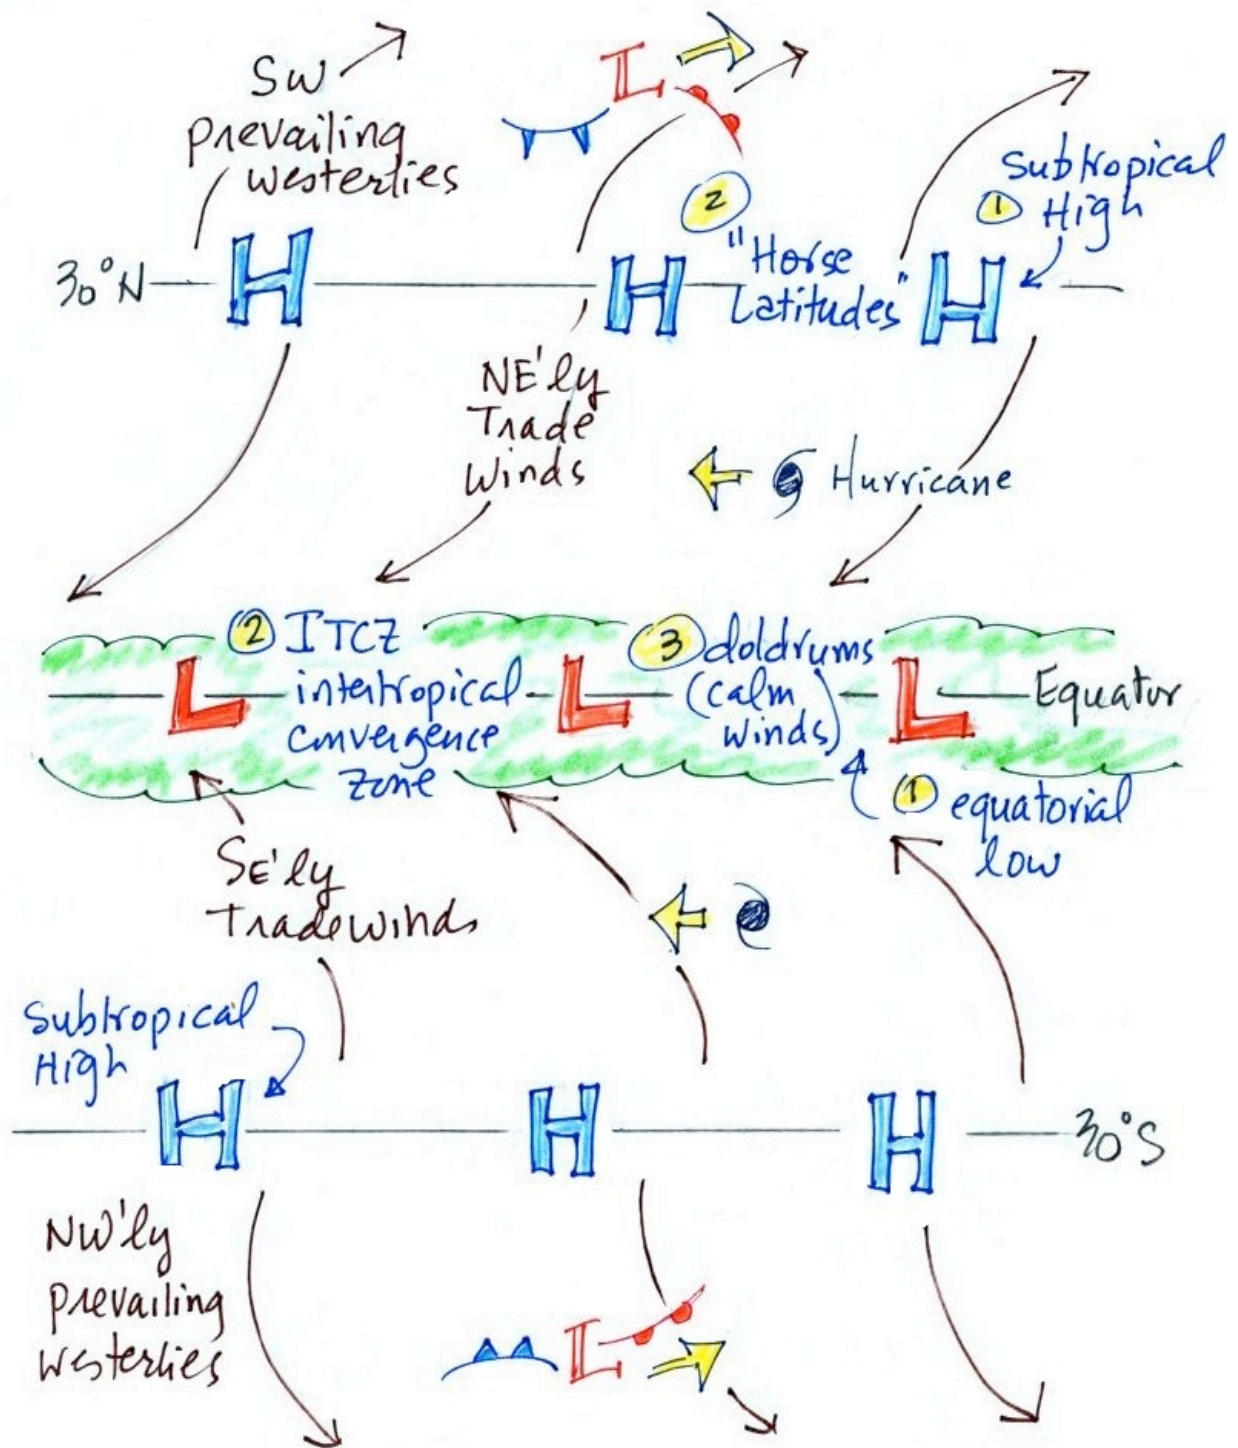 SW
prevailing
westerlies
L
2
Subtropical
1 High
30°N H H "Horse Latitudes" H
NE'ly
Trade
Winds
Hurricane
2 ITCZ
intertropical
convergence
zone
3 doldrums
(calm
winds)
L L L Equator
1 equatorial
low
SE'ly
Tradewinds
Subtropical
High
H H H 30°S
NW'ly
prevailing
westerlies
L